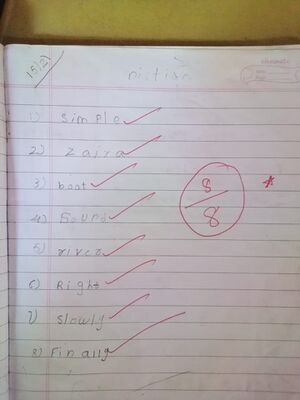 15/2
1) Simple
2) Zaira
3) boat
4) Sound
5) river
6) Right
7) Slowly
8) Finally
8/8